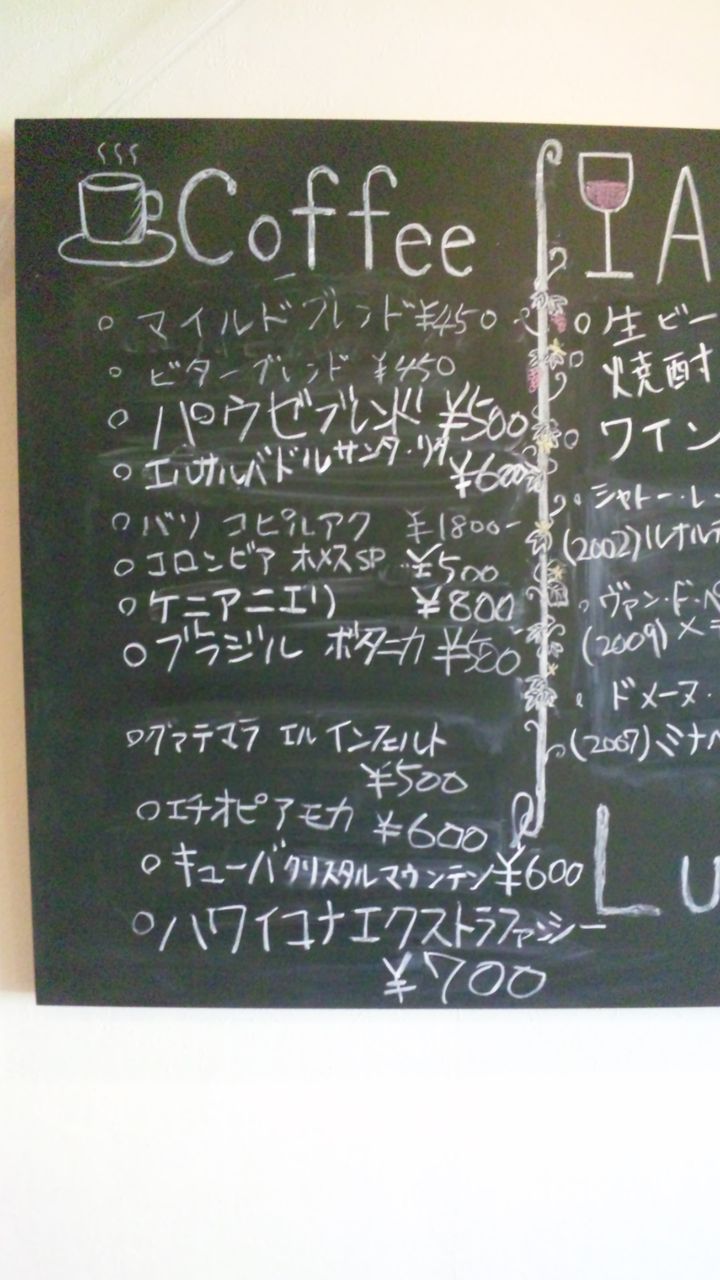 Coffee
○ マイルドブレンド ¥450
○ ビターブレンド ¥450
○ パウゼブレンド ¥500
○ エルサルバドルサンタ・リタ
¥600
○ バリ コピルアク ¥1800-
○ コロンビア ホメスSP ¥500
○ ケニアニエリ ¥800
○ ブラジル ボタニカ ¥500
○ グァテマラ エル インフェルト
¥500
○ エチオピアモカ ¥600
○ キューバクリスタルマウンテン ¥600
○ ハワイコナエクストラファンシー
¥700
A
○ 生ビー
焼酎
○ ワイン
・シャトー・レ・
(2002)ルナルデ
・ヴァン・ド・ペ
(2009)メ
・ドメーヌ・
(2007)ミナベ
Lu